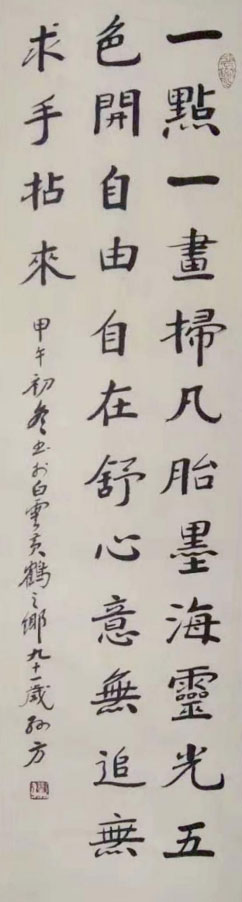 一點一畫掃凡胎墨海靈光五
色開自由自在舒心意無追無
求手拈來
甲午初冬书於白雲黄鶴之鄉九十一歲孙方